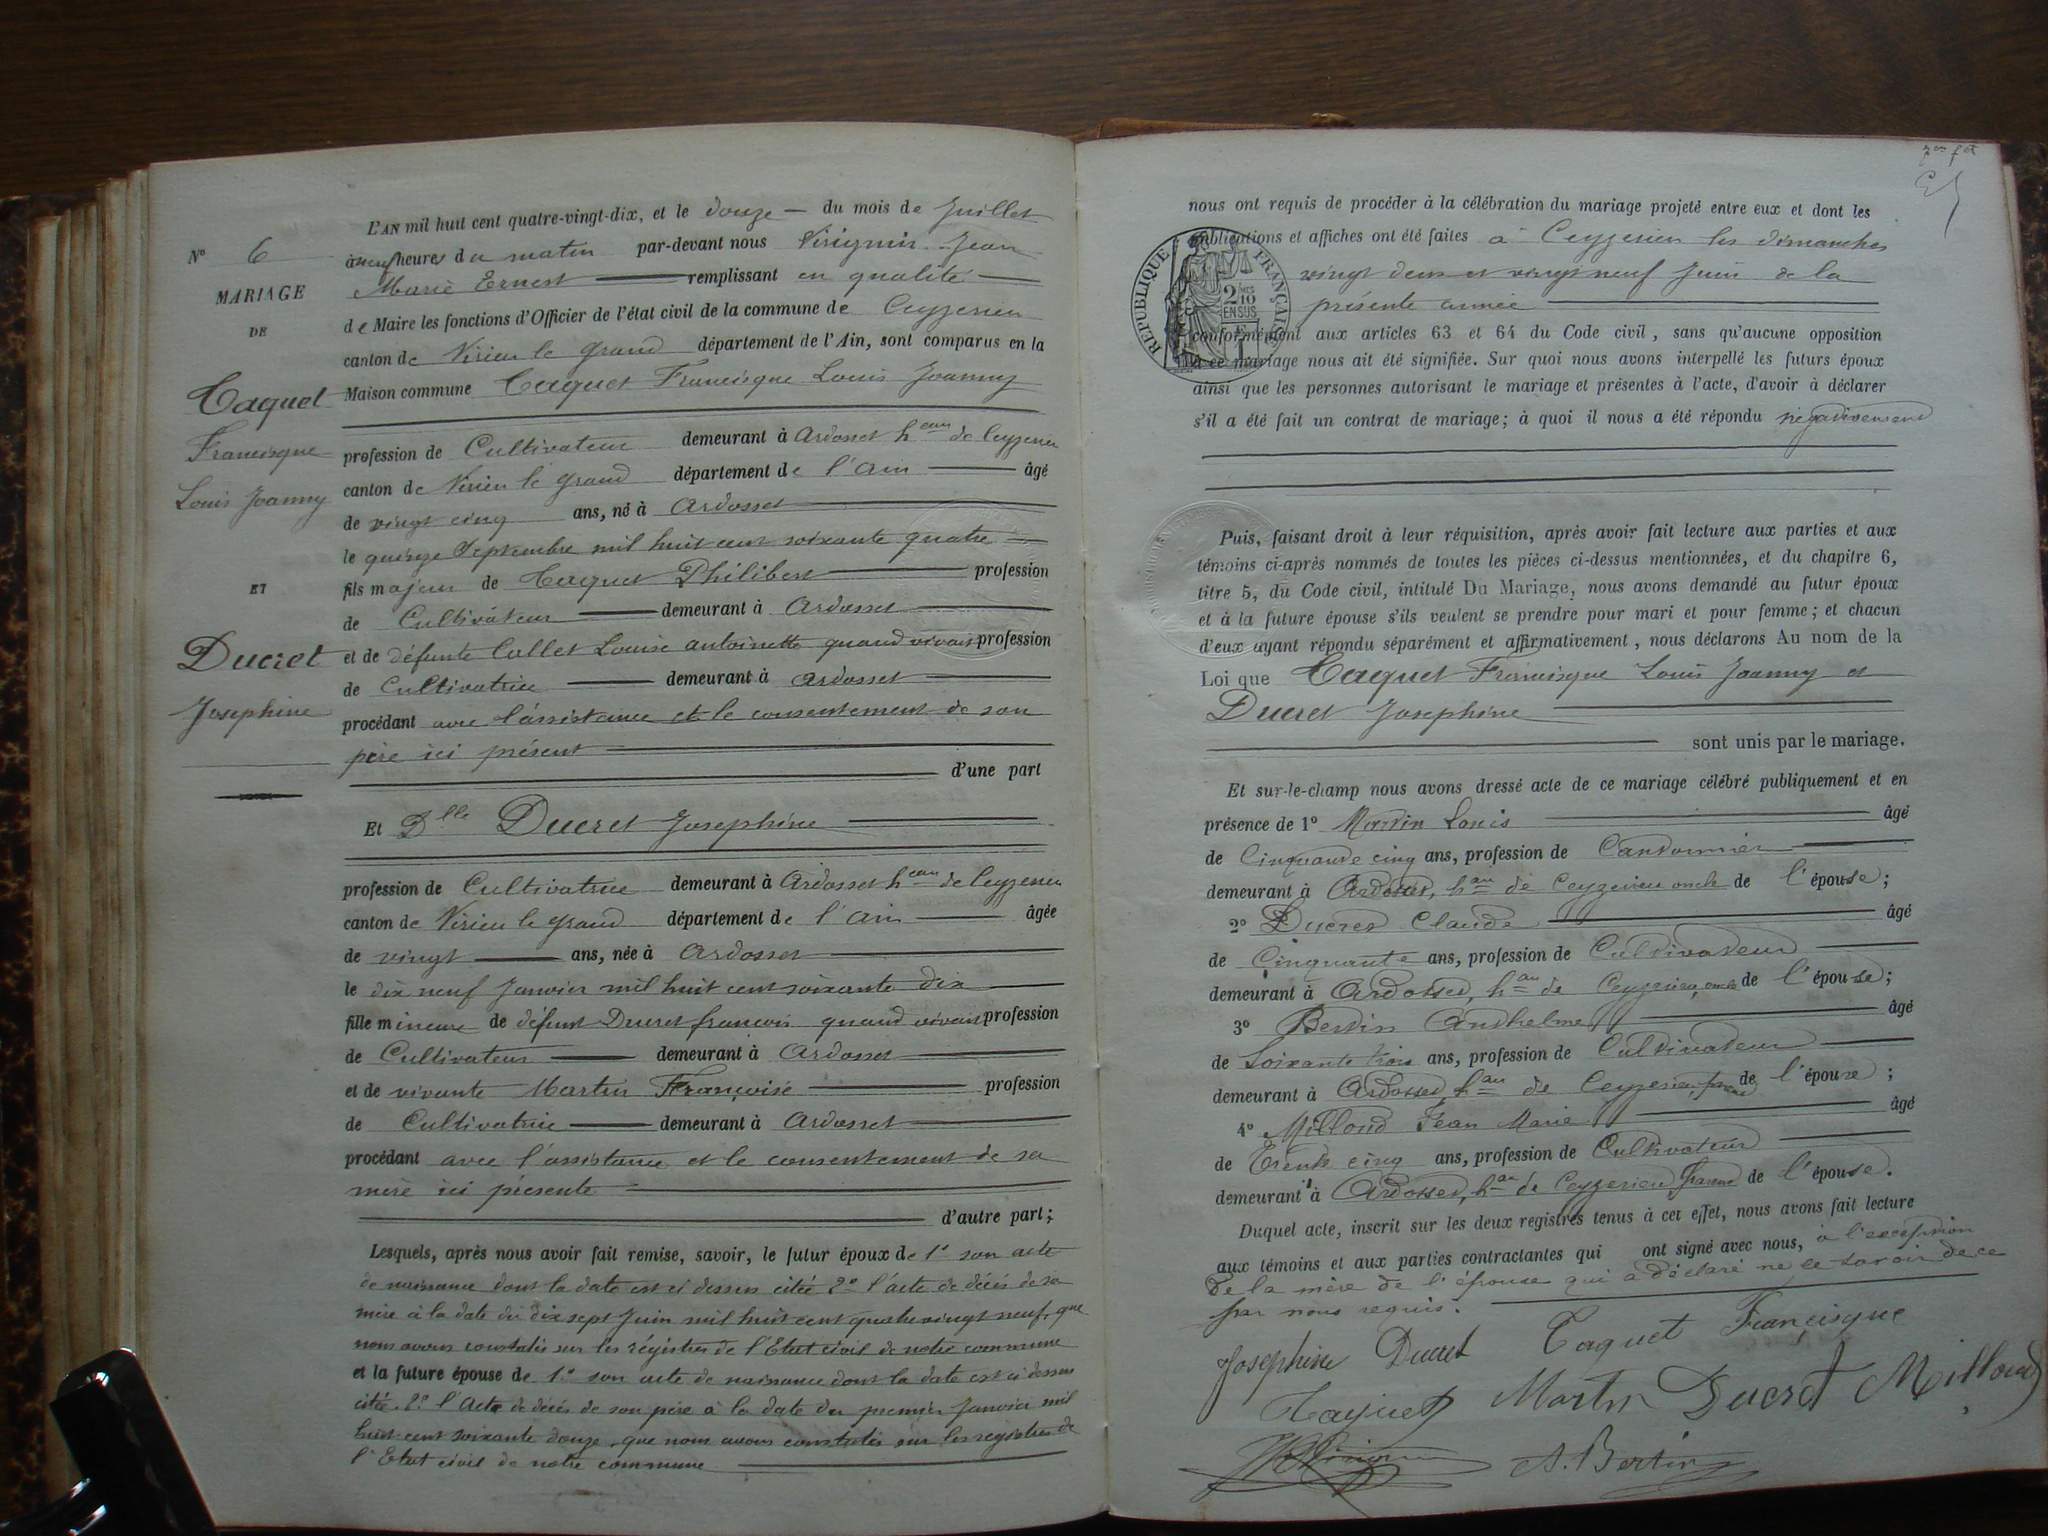 L'AN mil huit cent quatre-vingt-dix, et le douze du mois de Juillet
à neuf heures du matin par-devant nous Jean
Marie Ernest remplissant en qualité
de Maire les fonctions d'Officier de l'état civil de la commune de Ceyzerieu
canton de Virieu le grand département de l'Ain, sont comparus en la
Maison commune Taquet Francisque Louis Joanny
N° 6
MARIAGE
DE
Taquet
Francisque
Louis Joanny
ET
Ducret
Josephine
profession de Cultivateur demeurant à Ardosset heau de Ceyzerieu
canton de Virieu le grand département de l'Ain âgé
de vingt cinq ans, né à Ardosset
le quinze Septembre mil huit cent soixante quatre
fils majeur de Taquet Philibert profession
de Cultivateur demeurant à Ardosset
et de défunte Collet Louise antoinette quand vivait profession
de Cultivatrice demeurant à Ardosset
procédant avec l'assistance et le consentement de son
père ici présent
d'une part
Et Dlle Ducret Josephine
profession de Cultivatrice demeurant à Ardosset heau de Ceyzerieu
canton de Virieu le grand département de l'Ain âgée
de vingt ans, née à Ardosset
le dix neuf Janvier mil huit cent soixante dix
fille mineure de défunt Ducret françois quand vivait profession
de Cultivateur demeurant à Ardosset
et de vivante Martin Françoise profession
de Cultivatrice demeurant à Ardosset
procédant avec l'assistance et le consentement de sa
mère ici présente
d'autre part;
Lesquels, après nous avoir fait remise, savoir, le futur époux de 1° son acte
de naissance dont la date est ci dessus citée 2° l'acte de décès de sa
mère à la date du dix sept Juin mil huit cent quatre vingt neuf, que
nous avons constatés sur les régistres de l'Etat civil de notre commune
et la future épouse de 1° son acte de naissance dont la date est ci dessus
citée. 2° l'Acte de décès de son père à la date du premier Janvier mil
huit cent soixante douze, que nous avons constatés sur les registres de
l'Etat civil de notre commune
nous ont requis de procéder à la célébration du mariage projeté entre eux et dont les
publications et affiches ont été faites à Ceyzerieu les dimanches
vingt deux et vingt neuf Juin de la
présente année
RÉPUBLIQUE FRANÇAISE
2 10
EN SUS
conformément aux articles 63 et 64 du Code civil, sans qu'aucune opposition
à ce mariage nous ait été signifiée. Sur quoi nous avons interpellé les futurs époux
ainsi que les personnes autorisant le mariage et présentes à l'acte, d'avoir à déclarer
s'il a été fait un contrat de mariage; à quoi il nous a été répondu négativement
Puis, faisant droit à leur réquisition, après avoir fait lecture aux parties et aux
témoins ci-après nommés de toutes les pièces ci-dessus mentionnées, et du chapitre 6,
titre 5, du Code civil, intitulé Du Mariage, nous avons demandé au futur époux
et à la future épouse s'ils veulent se prendre pour mari et pour femme; et chacun
d'eux ayant répondu séparément et affirmativement, nous déclarons Au nom de la
Loi que Taquet Francisque Louis Joanny et
Ducret Josephine
sont unis par le mariage.
Et sur-le-champ nous avons dressé acte de ce mariage célébré publiquement et en
présence de 1° Martin Louis âgé
de Cinquante cinq ans, profession de Cantonnier
demeurant à Ardosset, hau de Ceyzerieu oncle de l'épouse;
2° Ducret Claude âgé
de Cinquante ans, profession de Cultivateur
demeurant à Ardosset, hau de Ceyzerieu, oncle de l'épouse;
3° Bertin Anthelme âgé
de Soixante trois ans, profession de Cultivateur
demeurant à Ardosset, hau de Ceyzerieu, de l'épouse;
4° Milloud Jean Marie âgé
de Trente cinq ans, profession de Cultivateur
demeurant à Ardosset, hau de Ceyzerieu de l'épouse.
Duquel acte, inscrit sur les deux registres tenus à cet effet, nous avons fait lecture
aux témoins et aux parties contractantes qui ont signé avec nous, à l'exception
de la mère de l'épouse qui a déclaré ne le savoir de ce
par nous requis.
Josephine Ducret Taquet Francisque
Taquet Martin Ducret Milloud
A. Bertin